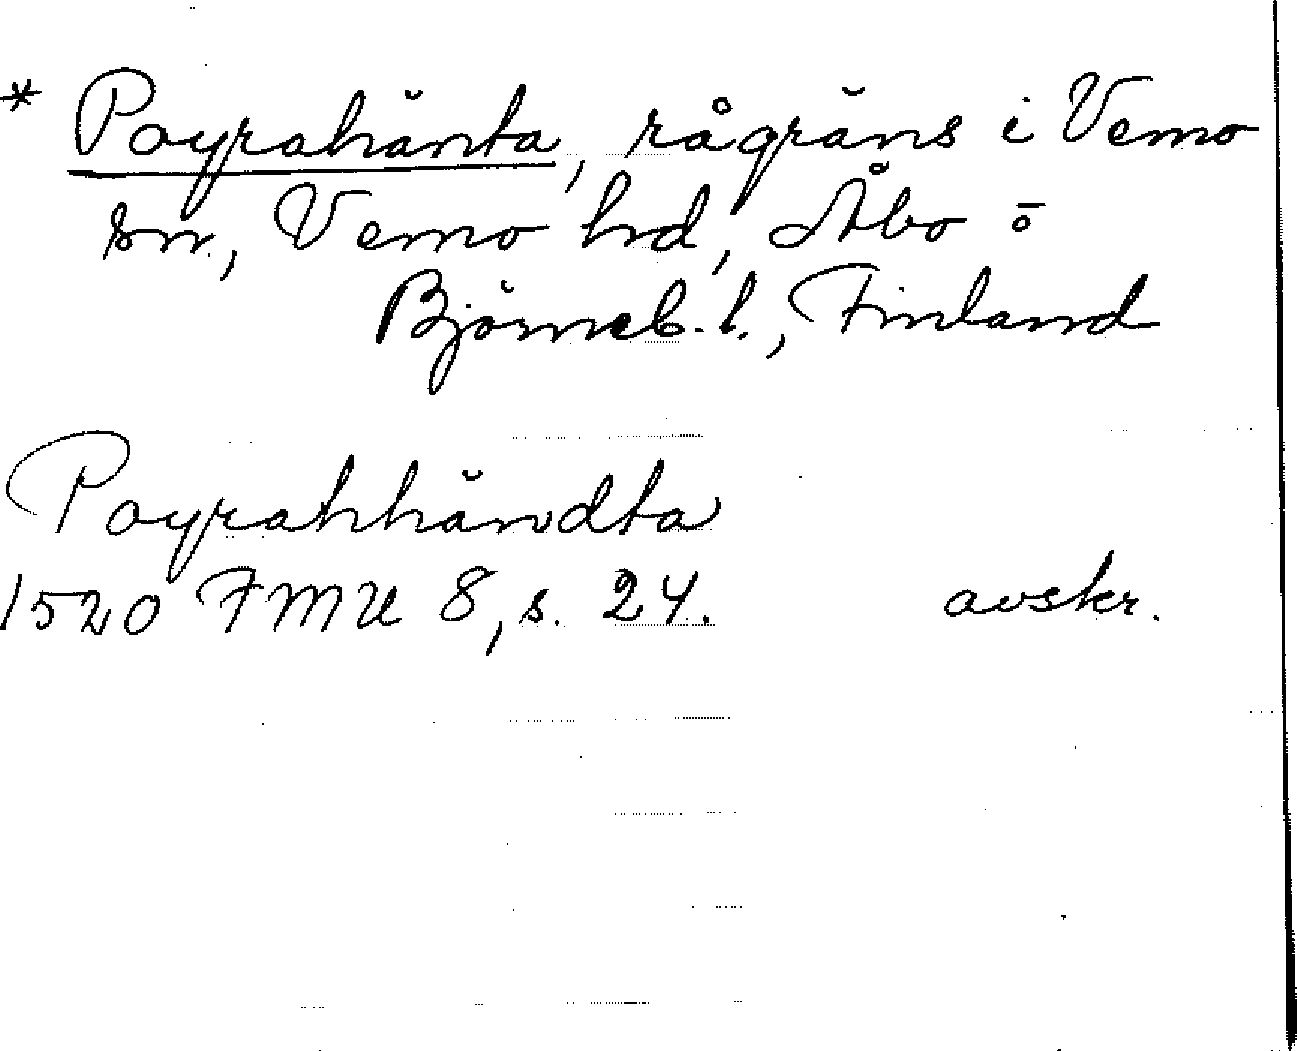 * Poyrahänta, rågräns i Vemo
sn., Vemo hd, Åbo o
Björneb. l., Finland
Poyrahhändta
1520 FMU 8, s. 24. avskr.